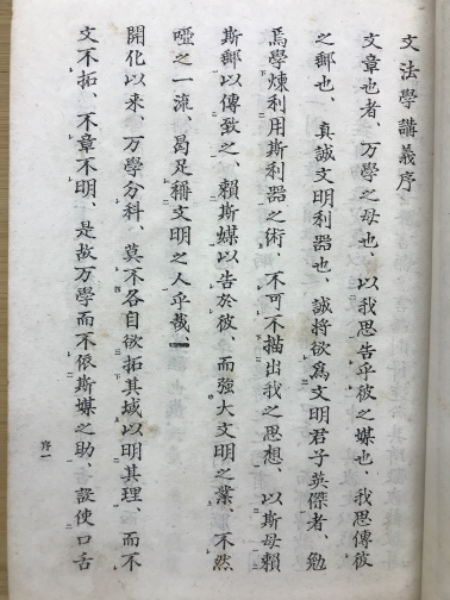 文法學講義序
文章也者、万學之母也、以我思告乎彼之媒也、我思傳彼
之郵也、真誠文明利器也、誠將欲爲文明君子英傑者、勉
焉學煉利用斯利器之術、不可不描出我之思想、以斯母賴
斯郵以傳致之、賴斯媒以告於彼、而強大文明之業、不然
啞之一流、曷足稱文明之人乎哉、
開化以来、万學分科、莫不各自欲拓其域以明其理、而不
文不拓、不章不明、是故万學而不依斯媒之助、設使口舌
序一